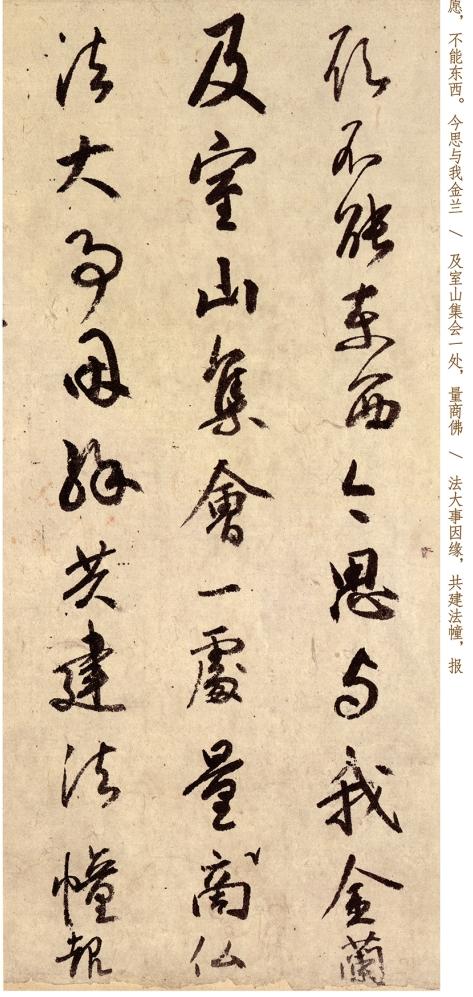 願不能東西今思与我金蘭
及室山集會一處量商仏
法大事因緣共建法幢報
愿，不能东西。今思与我金兰 \ 及室山集会一处，量商佛 \ 法大事因缘，共建法幢，报